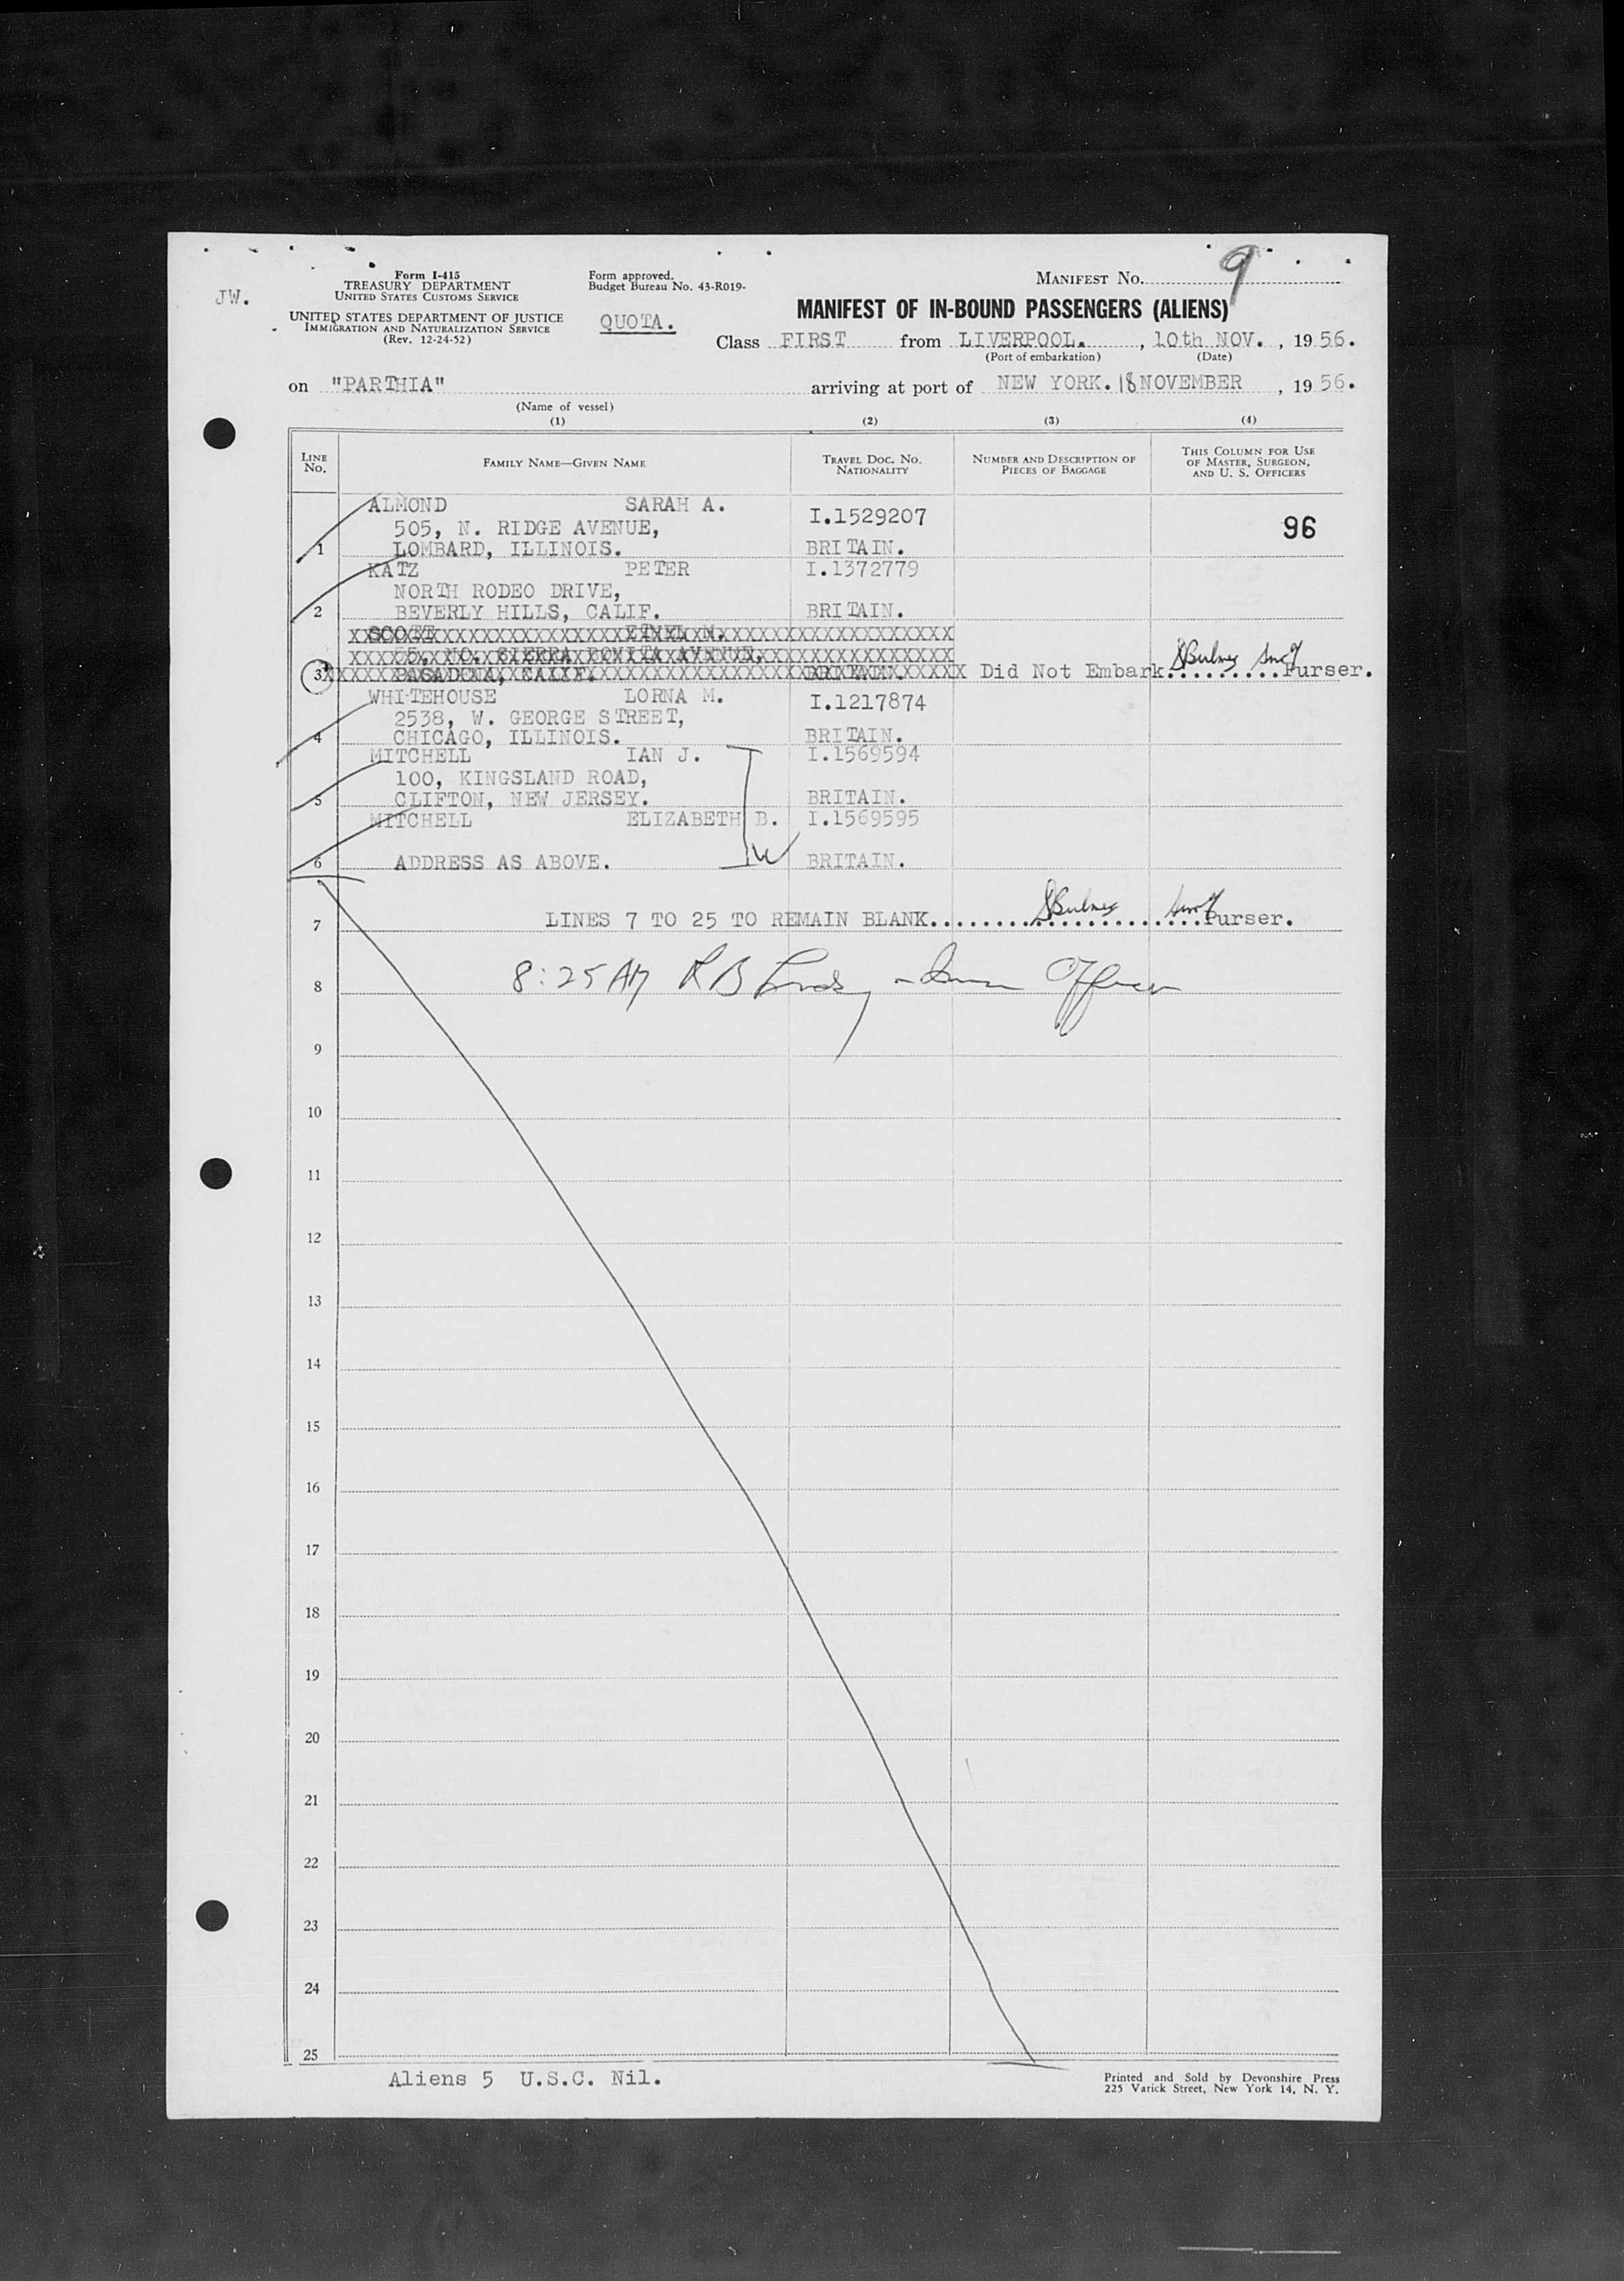 JW.
Form I-415
TREASURY DEPARTMENT
UNITED STATES CUSTOMS SERVICE
UNITED STATES DEPARTMENT OF JUSTICE
IMMIGRATION AND NATURALIZATION SERVICE
(Rev. 12-24-52)
Form approved.
Budget Bureau No. 43-R019-
QUOTA.
MANIFEST NO. 9
MANIFEST OF IN-BOUND PASSENGERS (ALIENS)
Class FIRST from LIVERPOOL. , 10th NOV. , 19 56.
(Port of embarkation) (Date)
on "PARTHIA" arriving at port of NEW YORK. 18 NOVEMBER , 19 56.
(Name of vessel)
(1) (2) (3) (4)
LINE No. FAMILY NAME—GIVEN NAME TRAVEL DOC. NO. NATIONALITY NUMBER AND DESCRIPTION OF PIECES OF BAGGAGE THIS COLUMN FOR USE OF MASTER, SURGEON, AND U. S. OFFICERS
ALMOND SARAH A. I.1529207
505, N. RIDGE AVENUE, 96
1 LOMBARD, ILLINOIS. BRITAIN.
KATZ PETER I.1372779
NORTH RODEO DRIVE,
2 BEVERLY HILLS, CALIF. BRITAIN.
SCOTT ETHEL M.
SIERRA BONITA AVENUE,
3 PASADENA, CALIF. BRITAIN. Did Not Embark.........Purser.
WHITEHOUSE LORNA M. I.1217874
2538, W. GEORGE STREET,
4 CHICAGO, ILLINOIS. BRITAIN.
MITCHELL IAN J. I.1569594
100, KINGSLAND ROAD,
5 CLIFTON, NEW JERSEY. BRITAIN.
MITCHELL ELIZABETH B. I.1569595
6 ADDRESS AS ABOVE. BRITAIN.
7 LINES 7 TO 25 TO REMAIN BLANK......................Purser.
8 8:25 AM R B Officer
9
10
11
12
13
14
15
16
17
18
19
20
21
22
23
24
25
Aliens 5 U.S.C. Nil.
Printed and Sold by Devonshire Press
225 Varick Street, New York 14, N. Y.